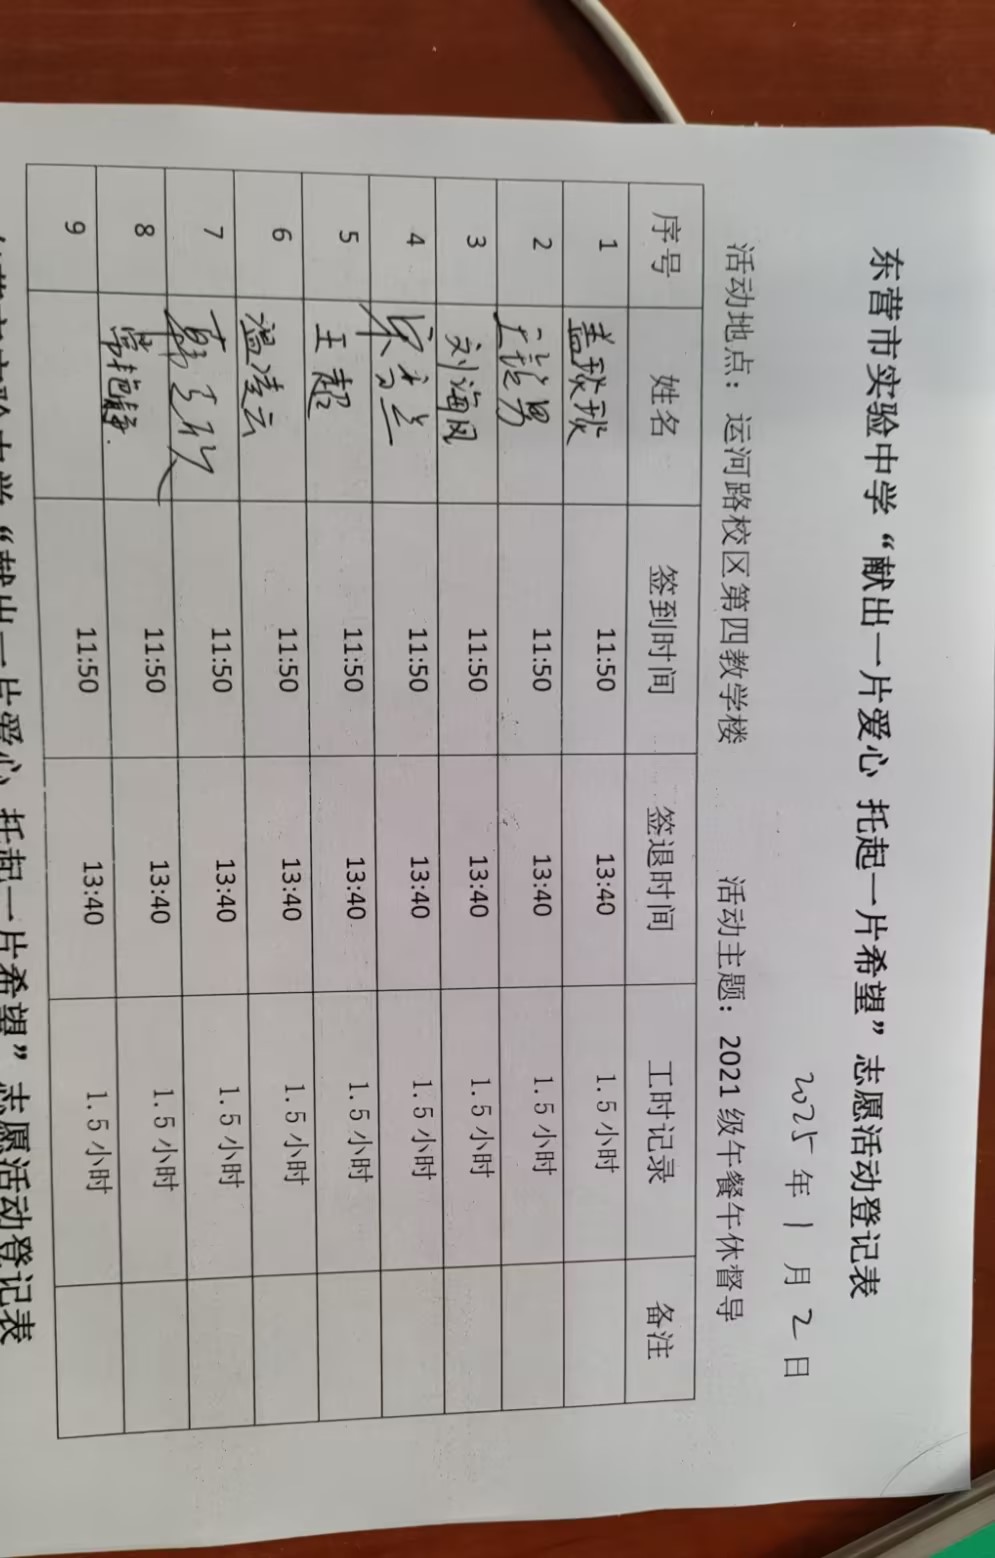 东营市实验中学“献出一片爱心 托起一片希望”志愿活动登记表
2025 年 1 月 2 日
活动地点：运河路校区第四教学楼 活动主题：2021 级午餐午休督导
序号 姓名 签到时间 签退时间 工时记录 备注
1 盖琰琰 11:50 13:40 1.5 小时
2 11:50 13:40 1.5 小时
3 刘海凤 11:50 13:40 1.5 小时
4 11:50 13:40 1.5 小时
5 王超 11:50 13:40 1.5 小时
6 温凌云 11:50 13:40 1.5 小时
7 11:50 13:40 1.5 小时
8 常艳静 11:50 13:40 1.5 小时
9 11:50 13:40 1.5 小时
“献出一片爱心 托起一片希望”志愿活动登记表